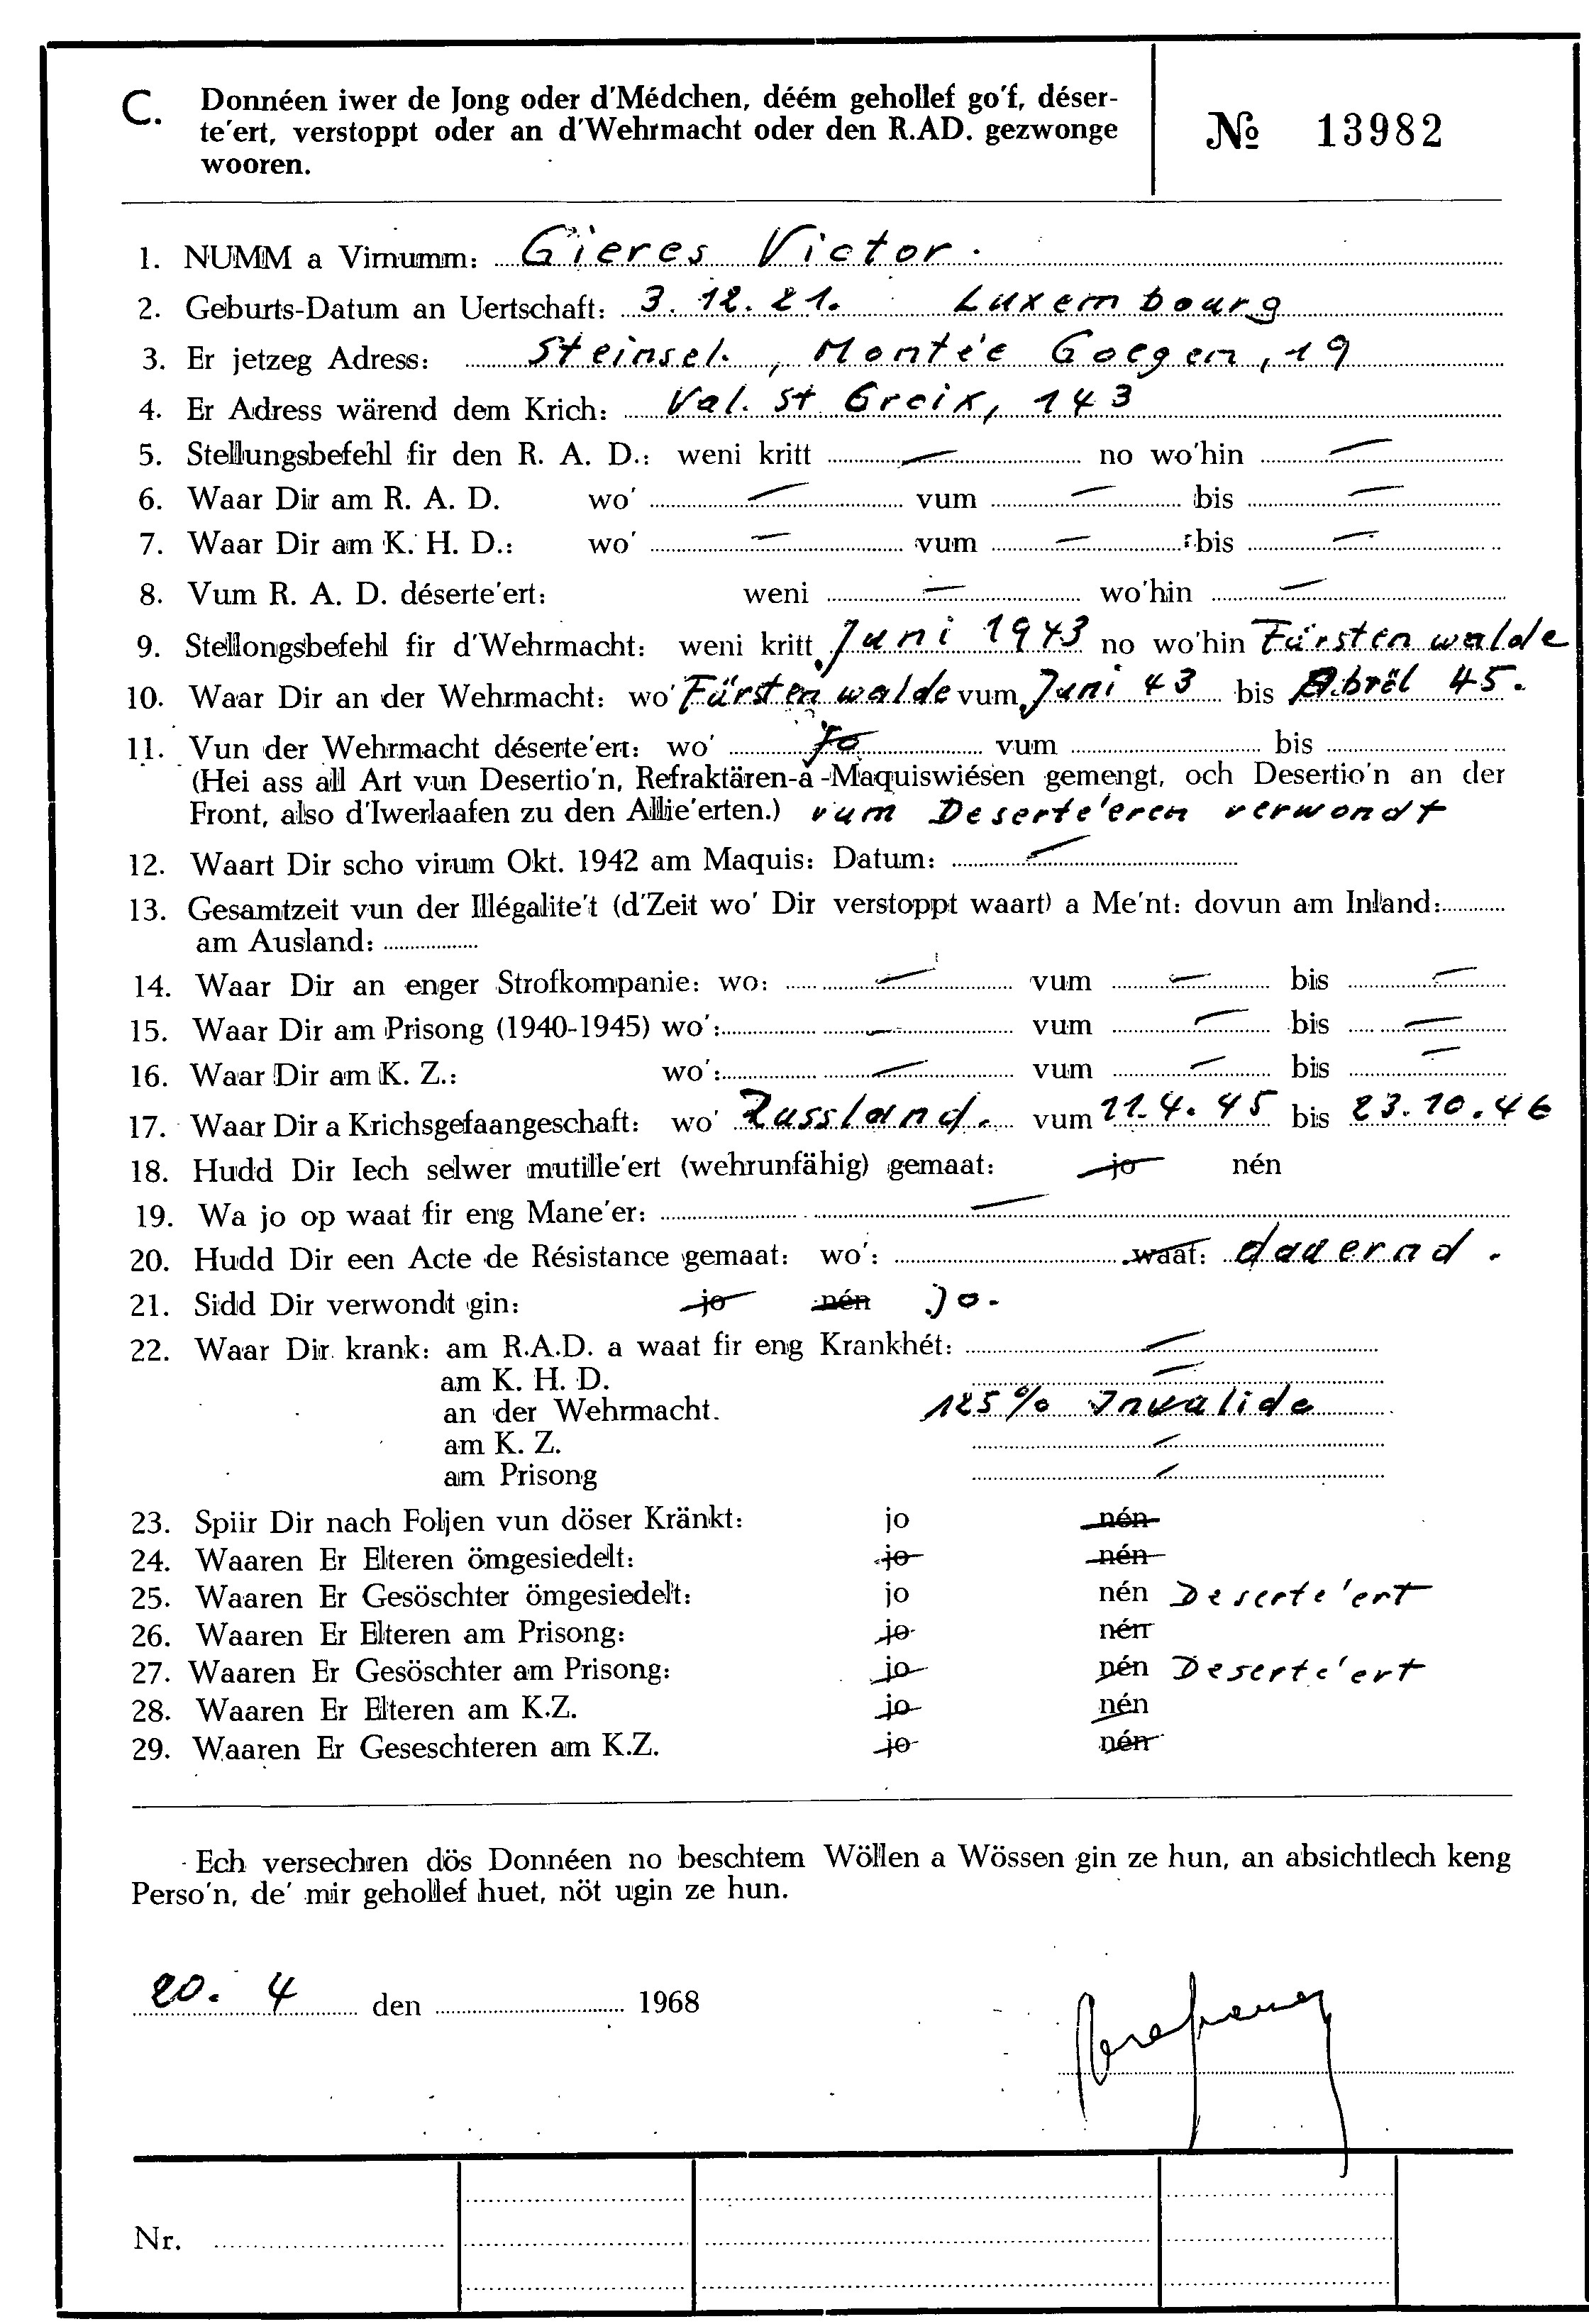 C. Donnéen iwer de Jong oder d'Médchen, déém gehollef go'f, déser-
te'ert, verstoppt oder an d'Wehrmacht oder den R.AD. gezwonge
wooren.
№ 13982
1. NUMM a Virnumm: Gieres Victor.
2. Geburts-Datum an Uertschaft: 3. 12. 21. Luxembourg
3. Er jetzeg Adress: Steinsel, Montée Goegen, 19
4. Er Adress wärend dem Krich: Val. St Creix, 143
5. Stellungsbefehl fir den R. A. D.: weni kritt — no wo'hin —
6. Waar Dir am R. A. D. wo' — vum — bis —
7. Waar Dir am K. H. D.: wo' — vum — bis —
8. Vum R. A. D. déserte'ert: weni — wo'hin —
9. Stellongsbefehl fir d'Wehrmacht: weni kritt Juni 1943 no wo'hin Fürstenwalde
10. Waar Dir an der Wehrmacht: wo' Fürstenwalde vum Juni 43 bis Abrël 45.
11. Vun der Wehrmacht déserte'ert: wo' Jo vum bis
(Hei ass all Art vun Desertio'n, Refraktären-a-Maquiswiésen gemengt, och Desertio'n an der
Front, also d'Iwerlaafen zu den Allie'erten.) vum Deserte'eren verwondt
12. Waart Dir scho virum Okt. 1942 am Maquis: Datum: —
13. Gesamtzeit vun der Illégalite't (d'Zeit wo' Dir verstoppt waart) a Me'nt: dovun am Inland:
am Ausland:
14. Waar Dir an enger Strofkompanie: wo: — vum — bis —
15. Waar Dir am Prisong (1940-1945) wo': — vum — bis —
16. Waar Dir am K. Z.: wo': — vum — bis —
17. Waar Dir a Krichsgefaangeschaft: wo' Russland. vum 11.4.45 bis 23.10.46
18. Hudd Dir Iech selwer mutille'ert (wehrunfähig) gemaat: jo nén
19. Wa jo op waat fir eng Mane'er: —
20. Hudd Dir een Acte de Résistance gemaat: wo': waat: dauernd.
21. Sidd Dir verwondt gin: jo nén jo.
22. Waar Dir krank: am R.A.D. a waat fir eng Krankhét: —
am K. H. D. —
an der Wehrmacht. 125% Invalide
am K. Z. —
am Prisong —
23. Spiir Dir nach Foljen vun döser Kränkt: jo nén
24. Waaren Er Elteren ömgesiedelt: jo nén
25. Waaren Er Gesöschter ömgesiedelt: jo nén Deserte'ert
26. Waaren Er Elteren am Prisong: jo nén
27. Waaren Er Gesöschter am Prisong: jo nén Deserte'ert
28. Waaren Er Elteren am K.Z. jo nén
29. Waaren Er Geseschteren am K.Z. jo nén
Ech versechren dös Donnéen no beschtem Wöllen a Wössen gin ze hun, an absichtlech keng
Perso'n, de' mir gehollef huet, nöt ugin ze hun.
20. 4 den 1968
Nr.